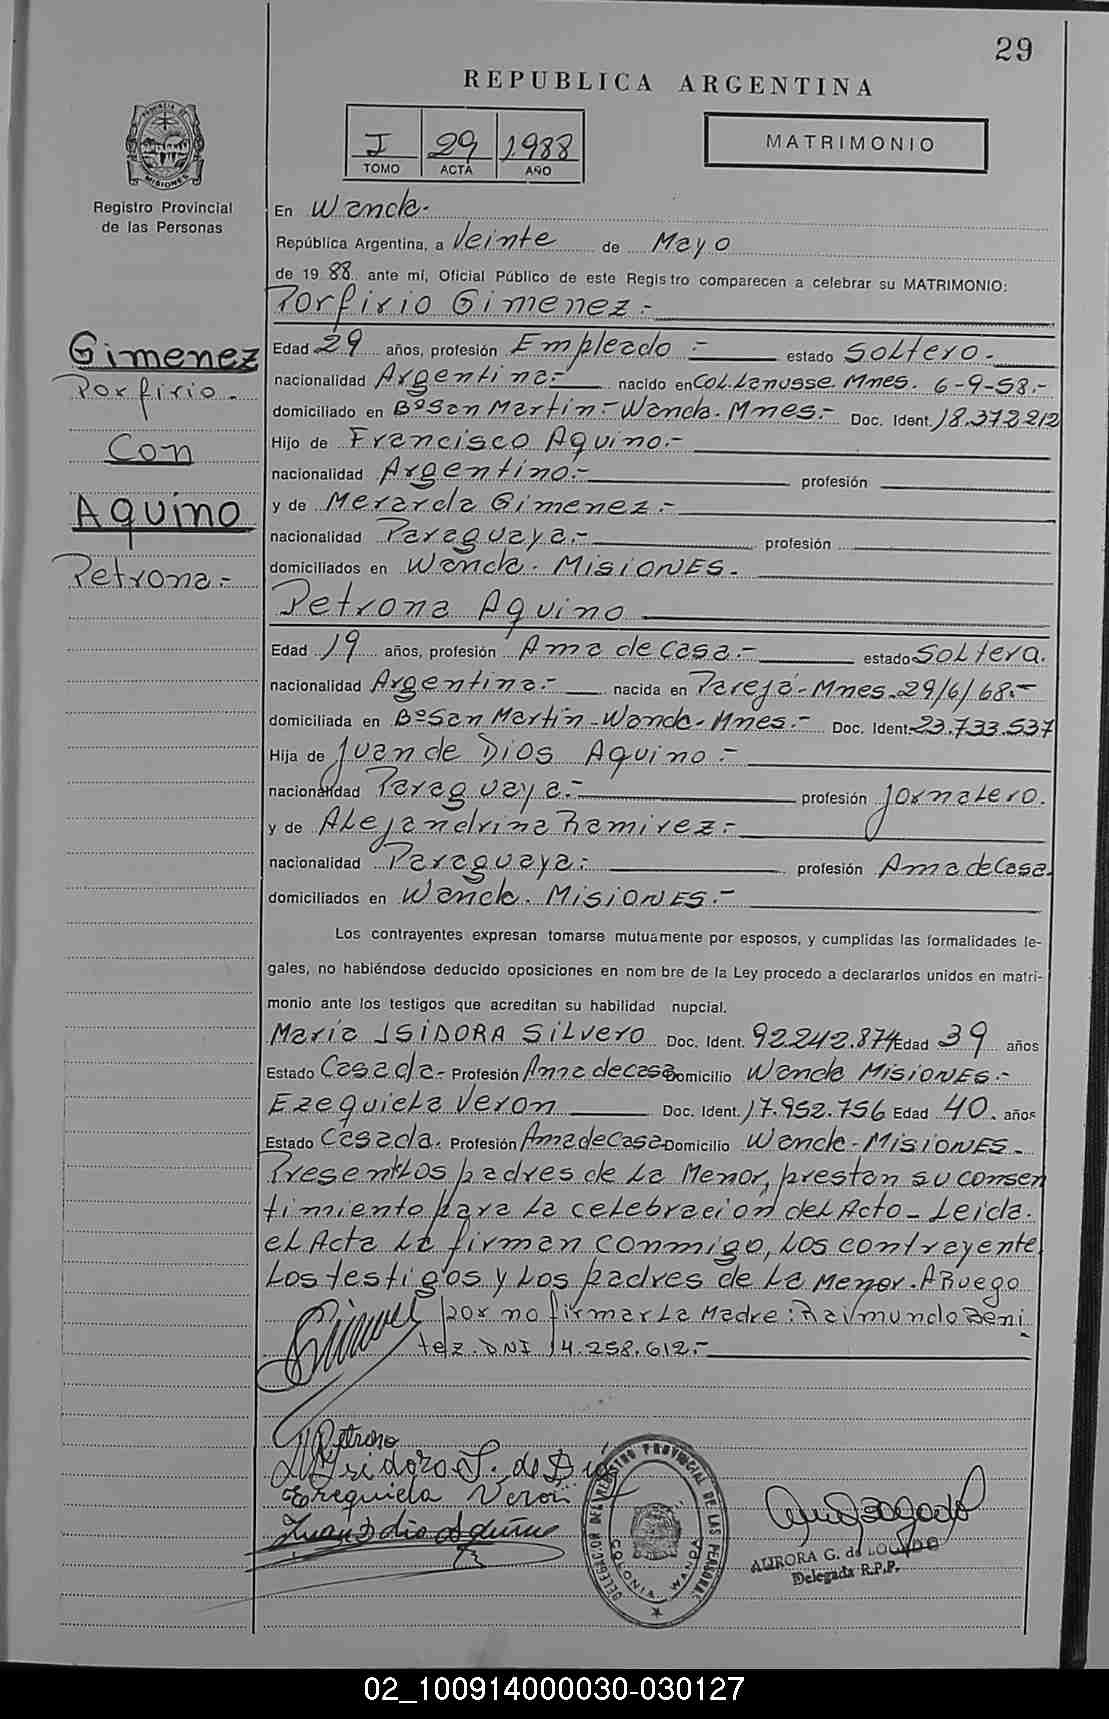 29
REPUBLICA ARGENTINA
I 29 1988
TOMO ACTA AÑO
MATRIMONIO
PROVINCIA DE MISIONES
Registro Provincial
de las Personas
En Wanda.
República Argentina, a Veinte de Mayo
de 19 88 ante mí, Oficial Público de este Registro comparecen a celebrar su MATRIMONIO:
Porfirio Gimenez.-
Gimenez
Porfirio.-
Con
Aquino
Petrona.-
Edad 29 años, profesión Empleado.- estado Soltero.-
nacionalidad Argentina.- nacido en Col. Lanusse. Mnes. 6-9-58.-
domiciliado en Bº San Martin.- Wanda. Mnes.- Doc. Ident. 18.372.212
Hijo de Francisco Aquino.-
nacionalidad Argentino.- profesión
y de Merarda Gimenez.-
nacionalidad Paraguaya.- profesión
domiciliados en Wanda. MISIONES.-
Petrona Aquino
Edad 19 años, profesión Ama de Casa.- estado Soltera.
nacionalidad Argentina.- nacida en Parejá-Mnes. 29/6/68.-
domiciliada en Bº San Martin-Wanda. Mnes.- Doc. Ident. 23.733.537
Hija de Juan de Dios Aquino.-
nacionalidad Paraguaya.- profesión Jornalero.
y de Alejandrina Ramirez.-
nacionalidad Paraguaya.- profesión Ama de Casa.
domiciliados en Wanda. MISIONES.-
Los contrayentes expresan tomarse mutuamente por esposos, y cumplidas las formalidades le-
gales, no habiéndose deducido oposiciones en nom bre de la Ley procedo a declararlos unidos en matri-
monio ante los testigos que acreditan su habilidad nupcial.
Maria ISIDORA Silvero Doc. Ident. 92.242.874 Edad 39 años
Estado Casada.- Profesión Ama de casa Domicilio Wanda MISIONES.-
Ezequiela Veron Doc. Ident. 17.952.756 Edad 40. años
Estado Casada. Profesión Ama de Casa Domicilio Wanda-MISIONES.-
Present Los padres de La Menor, prestan su consen
timiento para La celebracion del Acto- Leida.
el Acta La firman conmigo, Los contrayente
Los testigos y Los padres de La Menor. A Ruego
por no firmar La Madre: Raimundo Beni
tez. DNI 14.258.612.-
Petrona
Isidora S. de
Ezequiela Veron
Juan D dio Aquino
DELEGACION DEL REGISTRO PROVINCIAL DE LAS PERSONAS
COLONIA WANDA
AURORA G. de
Delegada R.P.P.
02_100914000030-030127